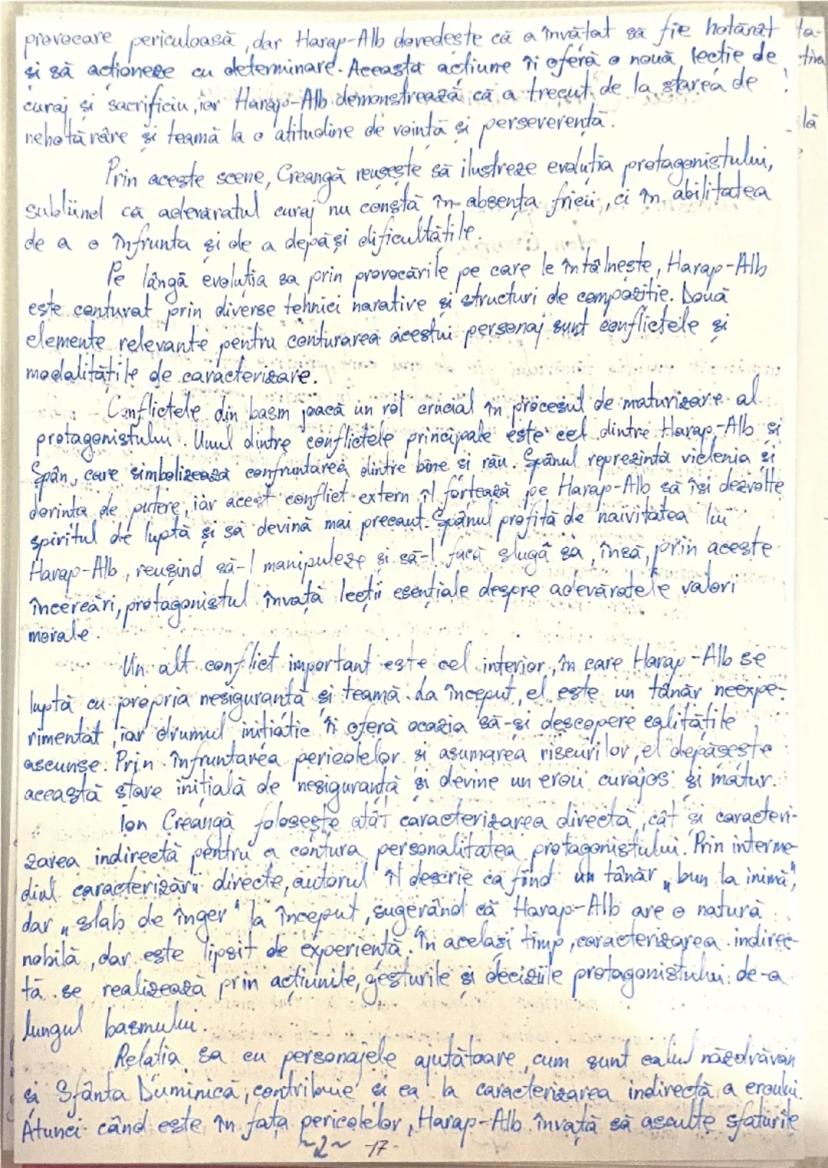 provocare periculoasă, dar Harap-Alb dovedește că a învățat să fie hotărât
și să acționeze cu determinare. Această acțiune îi oferă o nouă lecție de
curaj și sacrificiu, iar Harap-Alb demonstrează că a trecut de la starea de
nehotărâre și teamă la o atitudine de voință și perseverență.
Prin aceste scene, Creangă reușește să ilustreze evoluția protagonistului,
subliind că adevăratul curaj nu constă în absența fricii, ci în abilitatea
de a o înfrunta și de a depăși dificultățile.
Pe lângă evoluția sa prin provocările pe care le întâlnește, Harap-Alb
este conturat prin diverse tehnici narative și structuri de compoziție. Două
elemente relevante pentru conturarea acestui personaj sunt conflictele și
modalitățile de caracterizare.
Conflictele din basm joacă un rol crucial în procesul de maturizare al
protagonistului. Unul dintre conflictele principale este cel dintre Harap-Alb și
Spân, care simbolizează confruntarea dintre bine și rău. Spânul reprezintă viclenia și
dorința de putere, iar acest conflict extern îl forțează pe Harap-Alb să își dezvolte
spiritul de luptă și să devină mai precaut. Spânul profită de naivitatea lui
Harap-Alb, reușind să-l manipuleze și să-l facă slugă sa, însă, prin aceste
încercări, protagonistul învață lecții esențiale despre adevăratele valori
morale.
Un alt conflict important este cel interior, în care Harap-Alb se
luptă cu propria nesiguranță și teamă. La început, el este un tânăr neexpe-
rimentat, iar drumul inițiatic îi oferă ocazia să-și descopere calitățile
ascunse. Prin înfruntarea pericolelor și asumarea riscurilor, el depășește
această stare inițială de nesiguranță și devine un erou curajos și matur.
Ion Creangă folosește atât caracterizarea directă, cât și caracteri-
zarea indirectă pentru a contura personalitatea protagonistului. Prin interme-
diul caracterizării directe, autorul îl descrie ca fiind un tânăr „bun la inimă",
dar „slab de înger" la început, sugerând că Harap-Alb are o natură
nobilă, dar este lipsit de experiență. În același timp, caracterizarea indirec-
tă se realizează prin acțiunile, gesturile și deciziile protagonistului de-a
lungul basmului.
Relația sa cu personajele ajutătoare, cum sunt calul năzdrăvan
și Sfânta Duminică, contribuie și ea la caracterizarea indirectă a eroului.
Atunci când este în fața pericolelor, Harap-Alb învață să asculte sfaturile
~2~ 17-